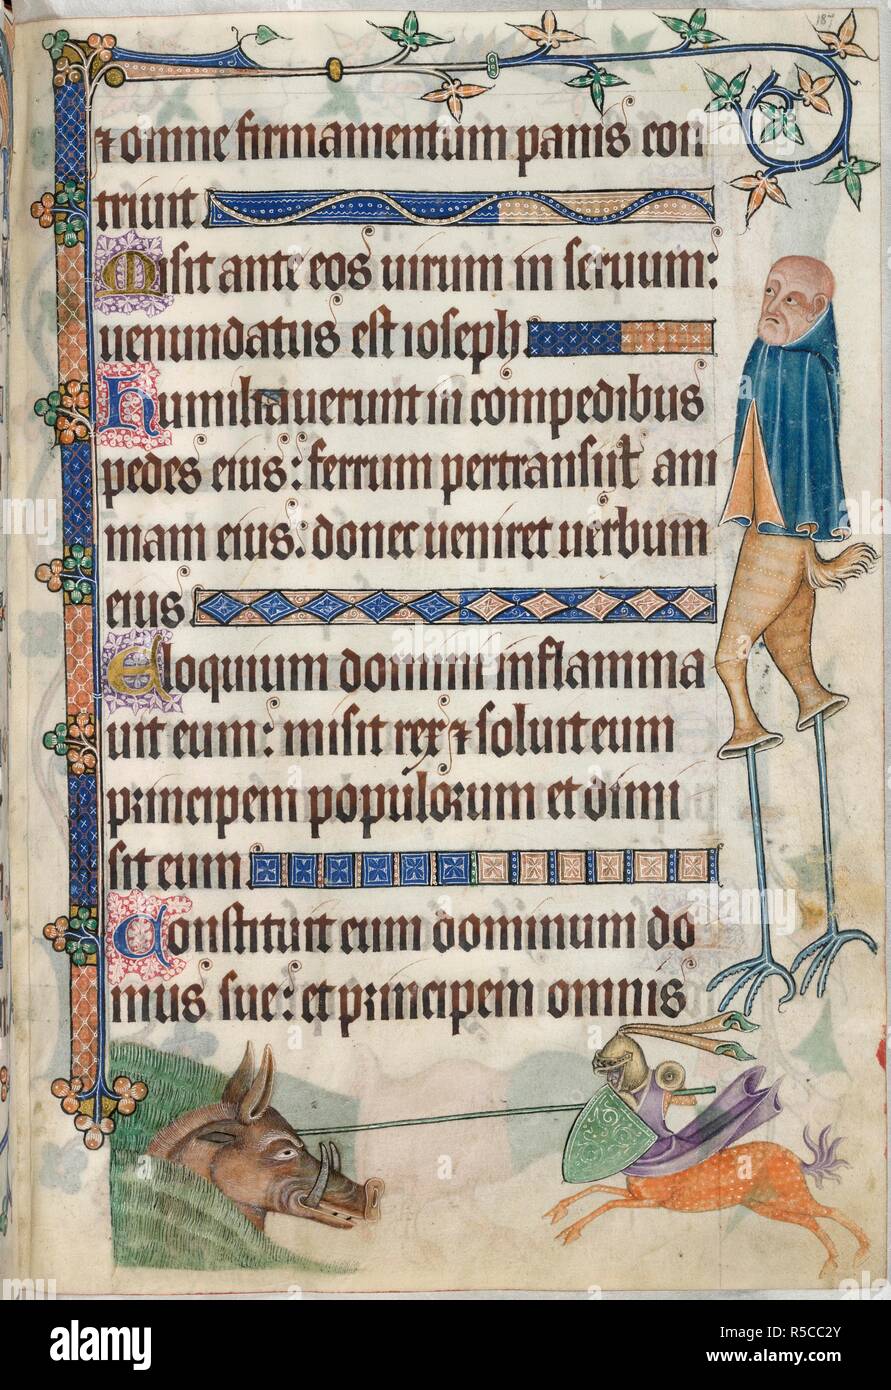 187
⁊ omne firmamentum panis con
triuit
Misit ante eos uirum in seruum:
uenundatus est ioseph
humiliauerunt in compedibus
pedes eius: ferrum pertransiit ani
mam eius: donec ueniret uerbum
eius
Eloquium domini inflamma
uit eum: misit rex ⁊ soluit eum
princeps populorum et dimi
sit eum
Constituit eum dominum do
mus sue: et principem omnis
alamy
Image ID: R5CC2Y
www.alamy.com